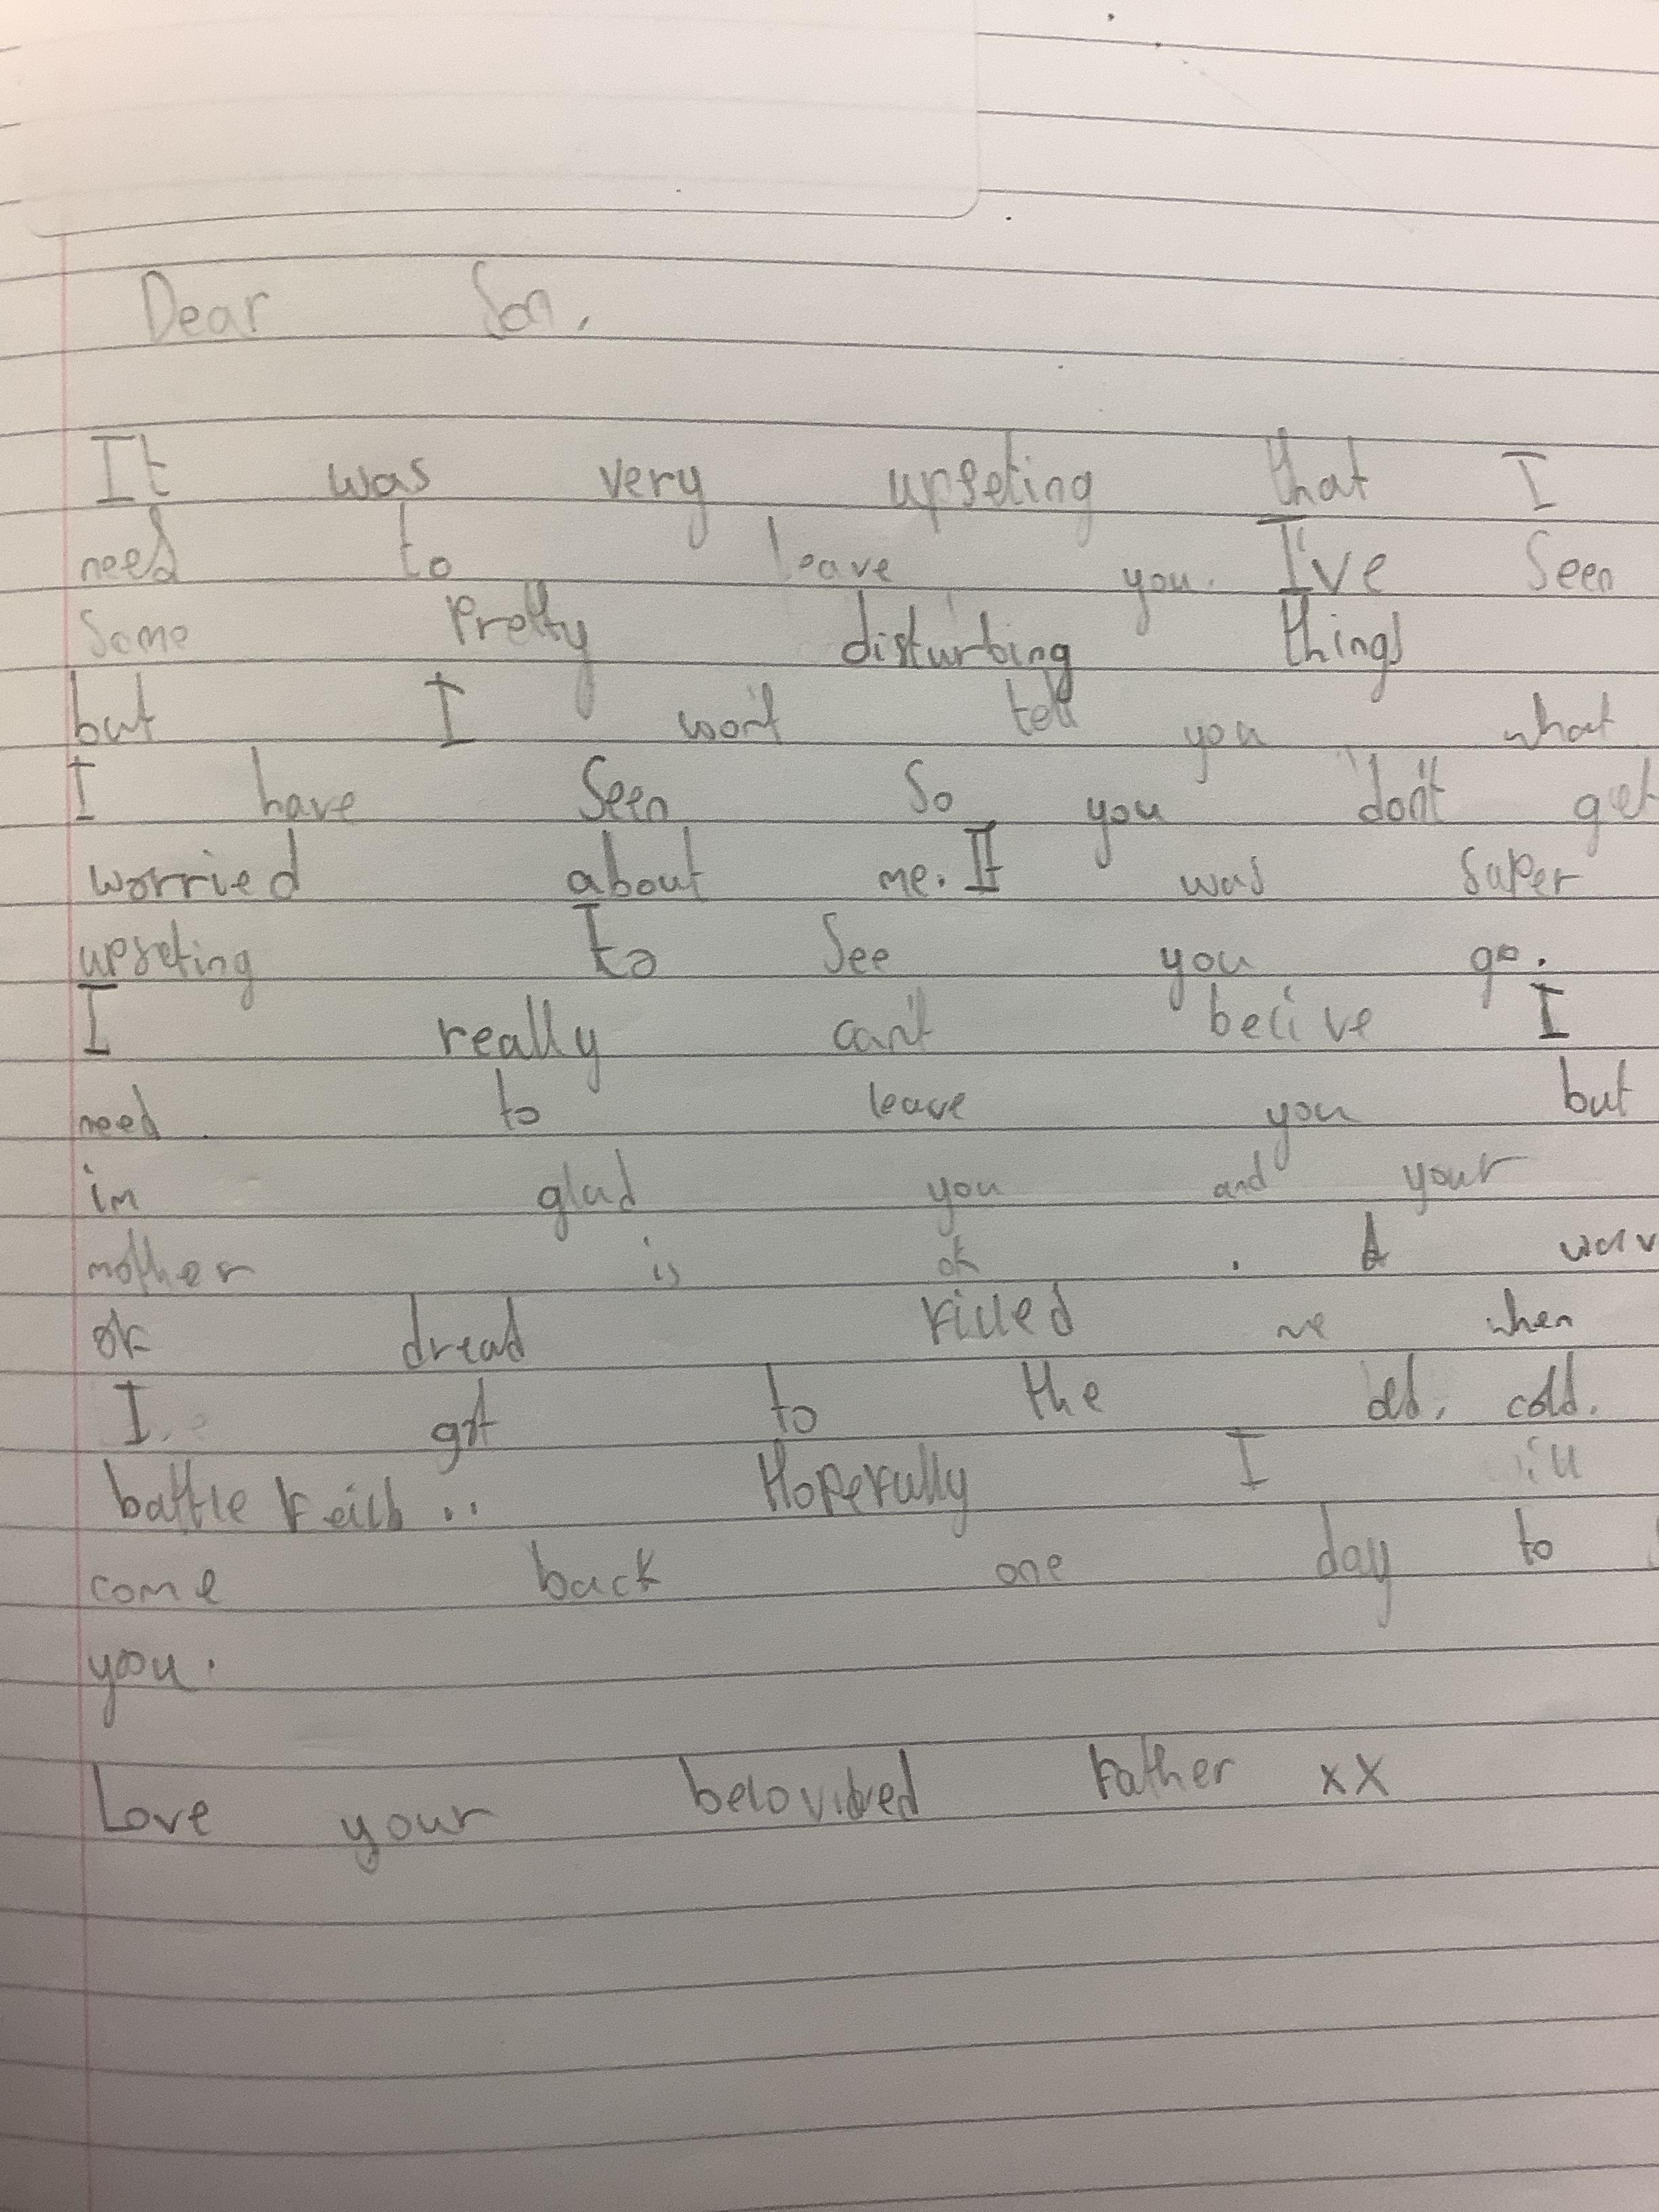 Dear Son,
It was very upseting that I
need to leave you. I've Seen
Some Pretty disturbing things
but I won't tell you what
I have Seen So you don't get
worried about me. It was super
upseting to See you go.
I really can't belive I
need to leave you but
im glad you and your
mother is ok . A wav
of dread filled me when
I got to the old, cold.
battle feild .. Hopefully I ill
come back one day to
you.
Love your father xx